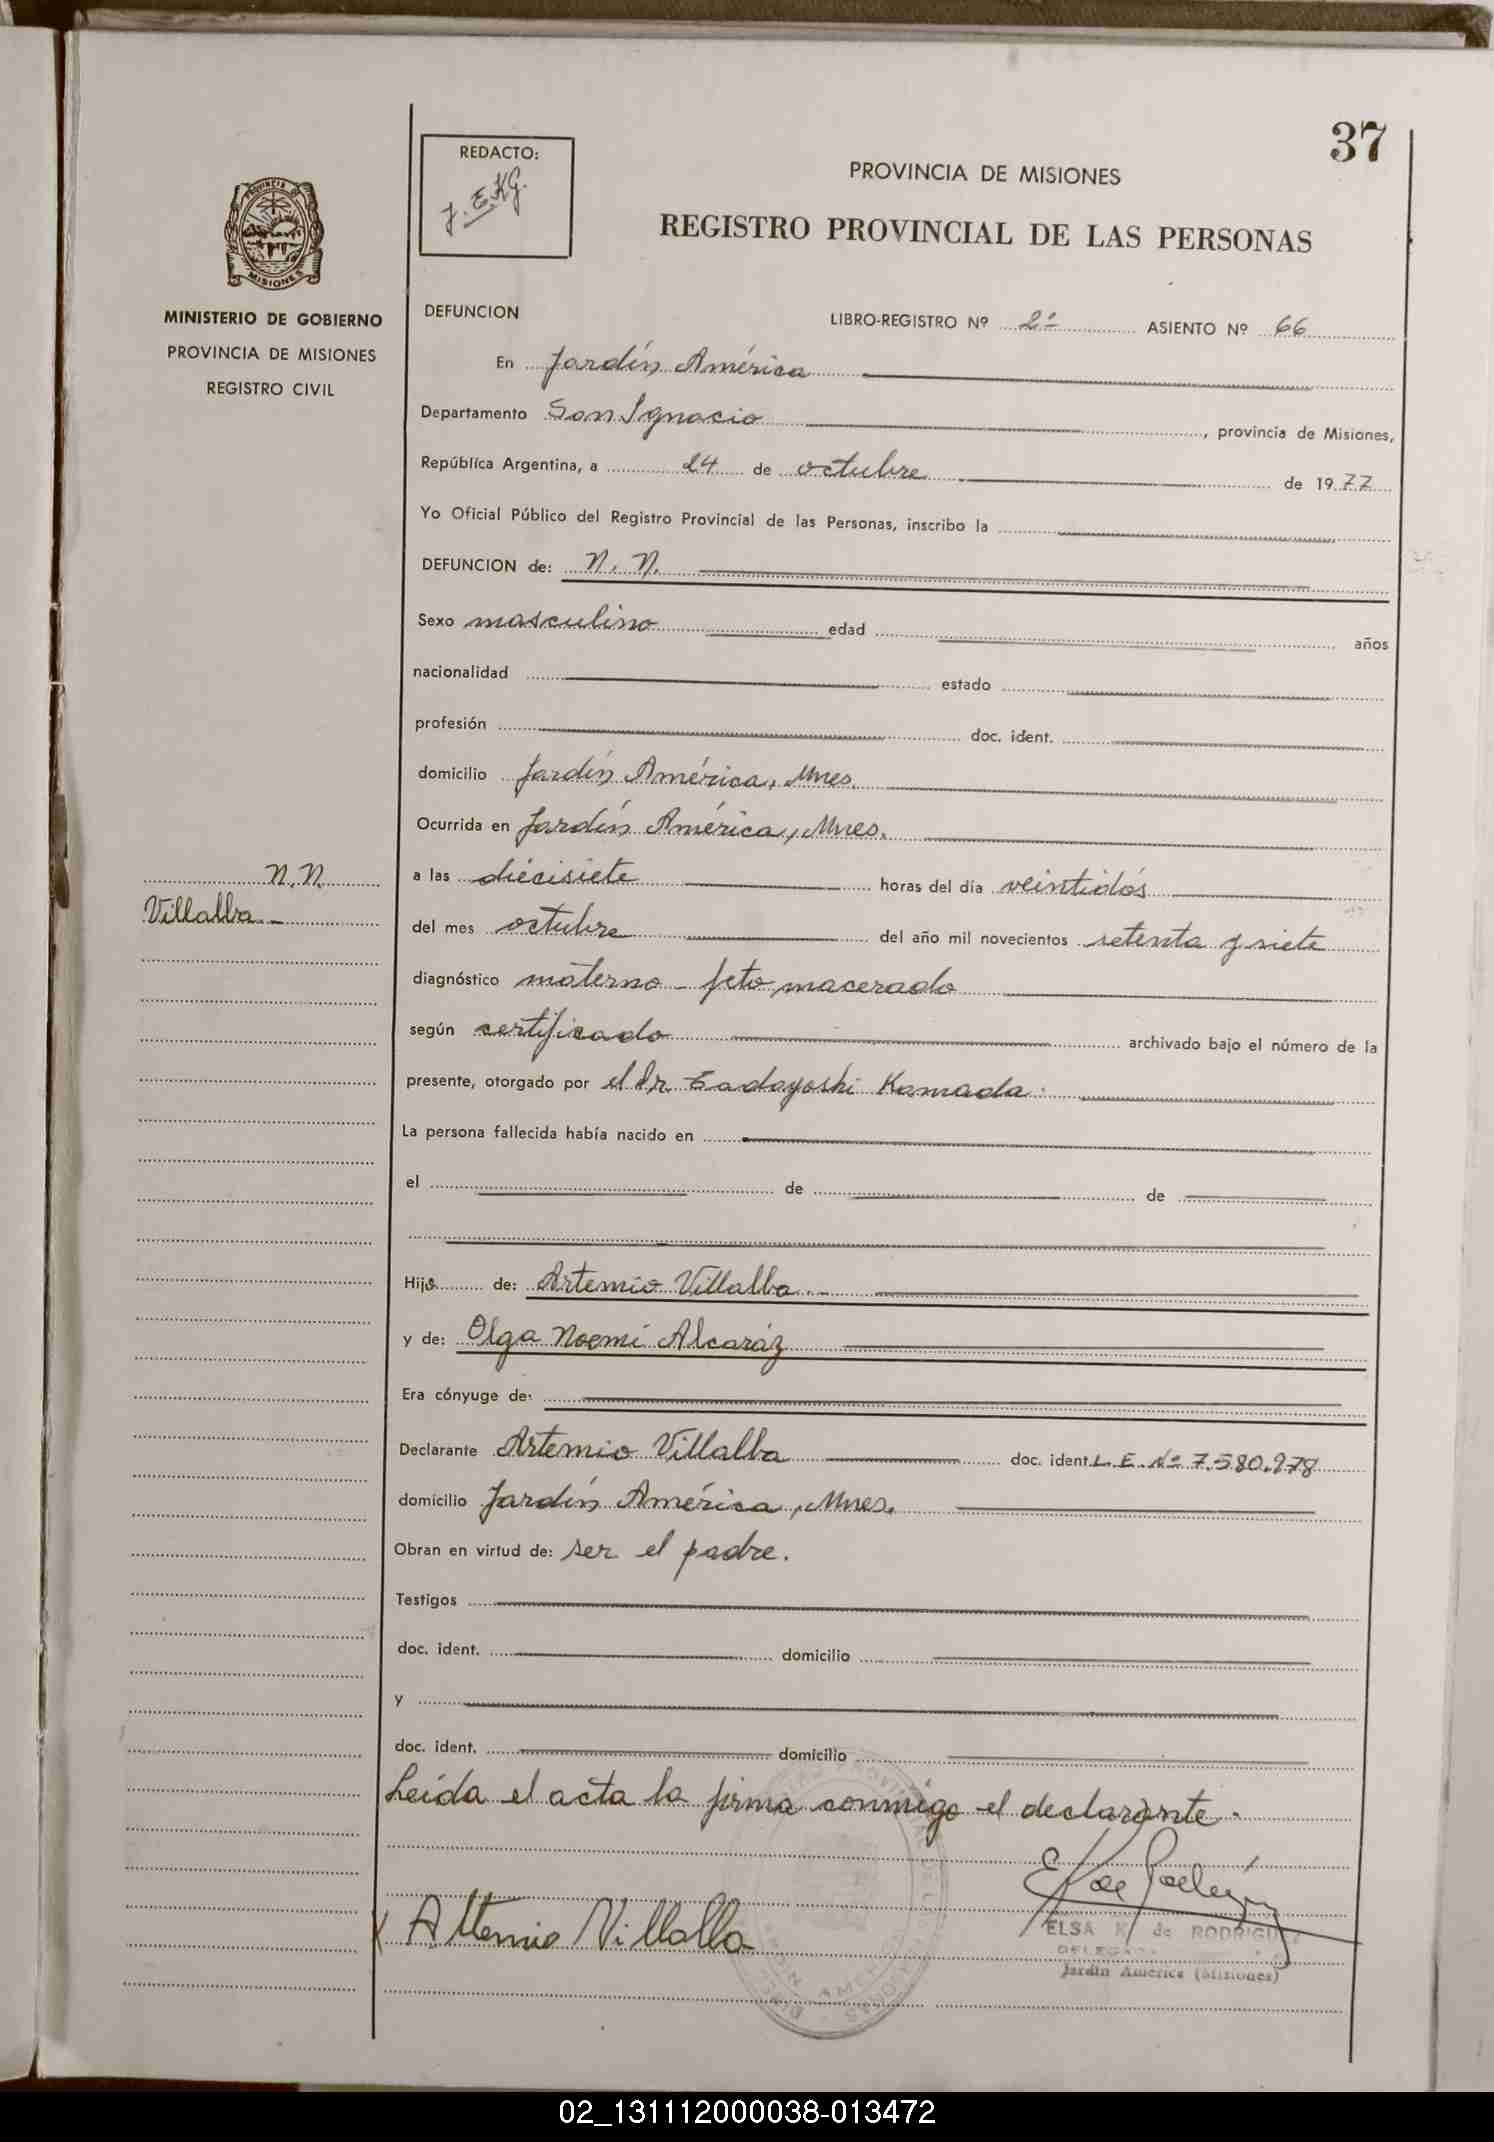 37
REDACTO:
J. E. K. G.
PROVINCIA DE MISIONES
REGISTRO PROVINCIAL DE LAS PERSONAS
PROVINCIA DE
MISIONES
MINISTERIO DE GOBIERNO
PROVINCIA DE MISIONES
REGISTRO CIVIL
DEFUNCION LIBRO-REGISTRO Nº 2º ASIENTO Nº 66
En Jardín América
Departamento San Ignacio, provincia de Misiones,
República Argentina, a 24 de octubre de 1977
Yo Oficial Público del Registro Provincial de las Personas, inscribo la
DEFUNCION de: N. N.
Sexo masculino edad años
nacionalidad estado
profesión doc. ident.
domicilio Jardín América, Mnes.
Ocurrida en Jardín América, Mnes.
N.N.
Villalba.-
a las diecisiete horas del día veintidós
del mes octubre del año mil novecientos setenta y siete
diagnóstico materno - feto macerado
según certificado archivado bajo el número de la
presente, otorgado por el Dr. Tadayoshi Kamada.
La persona fallecida había nacido en
el de de
Hijo de: Artemio Villalba.-
y de: Olga Noemí Alcaráz
Era cónyuge de:
Declarante Artemio Villalba doc. ident. L. E. Nº 7.580.978
domicilio Jardín América, Mnes.
Obran en virtud de: ser el padre.
Testigos
doc. ident. domicilio
y
doc. ident. domicilio
Leída el acta la firma conmigo el declarante.
x Artemio Villalba
ELSA K de RODRIGUEZ
Jardín América (Misiones)
02_131112000038-013472